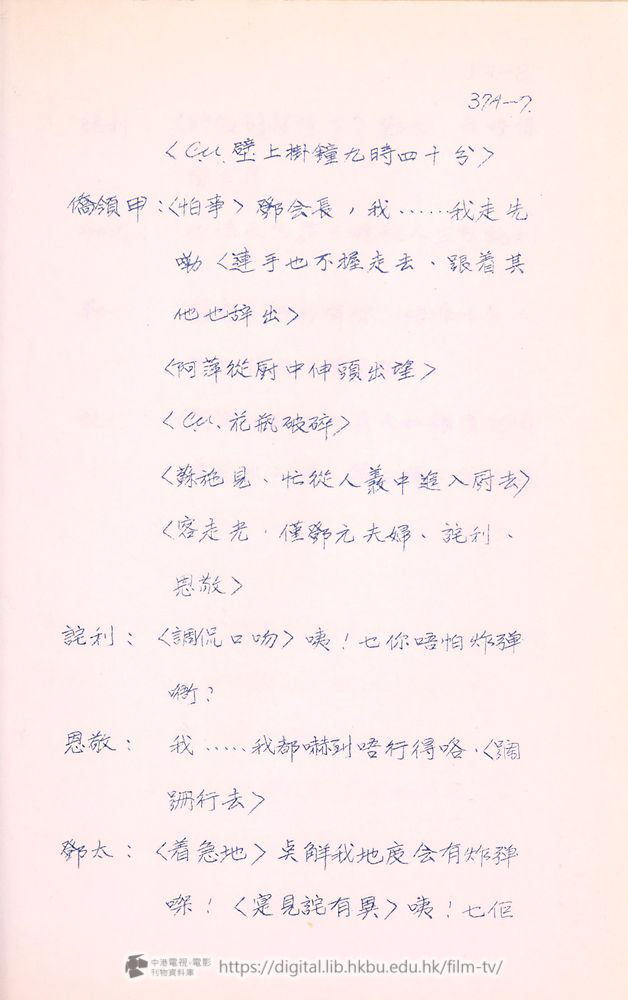 37A-7.
〈C.U. 壁上掛鐘九時四十分〉
僑領甲：〈怕事〉鄧会長，我……我走先
嘞〈連手也不握走去、跟着其
他也辞出〉
〈阿萍從厨中伸頭出望〉
〈C.U. 花瓶破碎〉
〈蘇施見、忙從人叢中進入厨去〉
〈客走光．僅鄧元夫婦、詫利、
恩敬〉
詫利：〈調侃口吻〉咦！乜你唔怕炸彈
嘅？
恩敬：我……我都嚇到唔行得咯．〈蹣
跚行去〉
鄧太：〈着急地〉点解我地度会有炸彈
㗎！〈寔見詫有異〉咦！乜佢
中港電視·電影
刊物資料庫
https://digital.lib.hkbu.edu.hk/film-tv/